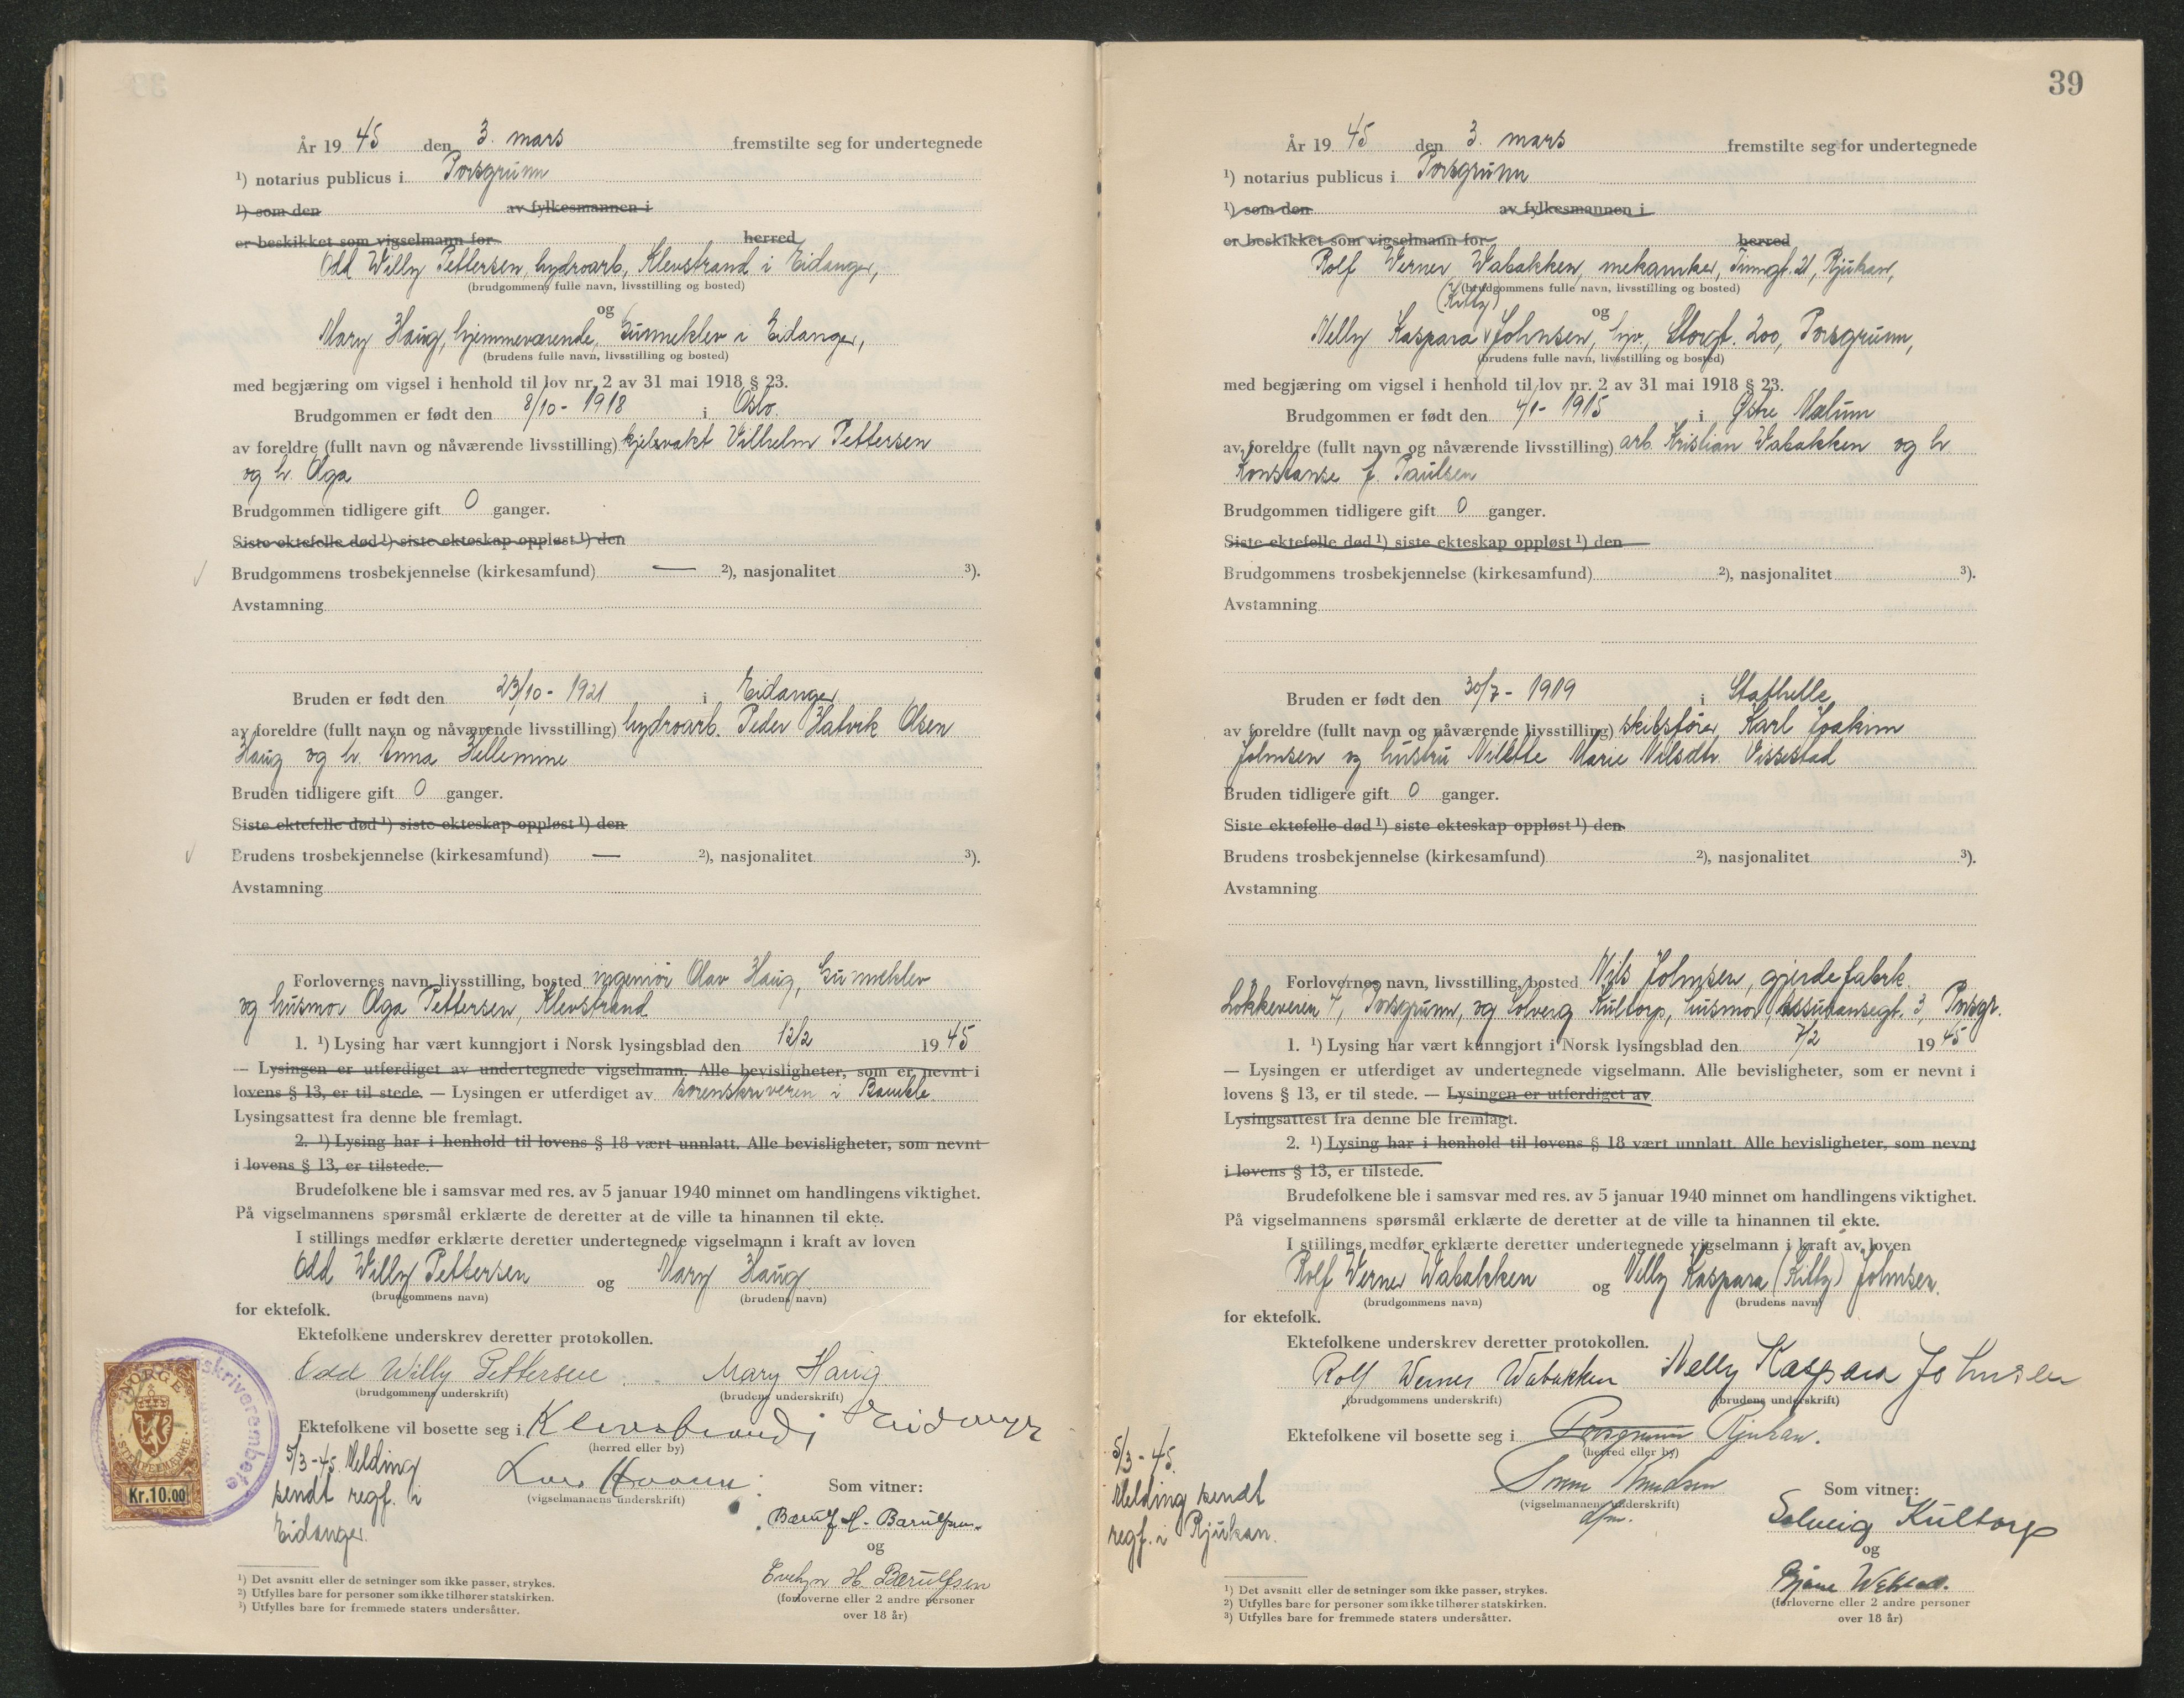 År 19 45 den 3. mars fremstilte seg for undertegnede
¹) notarius publicus i Porsgrunn
¹) som den av fylkesmannen i
er beskikket som vigselmann for herred
Odd Willy Pettersen, hydroarb, Klevstrand i Eidanger,
(brudgommens fulle navn, livsstilling og bosted)
og
Mary Haug, hjemmeværende, Gunneklev i Eidanger,
(brudens fulle navn, livsstilling og bosted)
med begjæring om vigsel i henhold til lov nr. 2 av 31 mai 1918 § 23.
Brudgommen er født den 8/10 - 1918 i Oslo.
av foreldre (fullt navn og nåværende livsstilling) kjelsvakt Vilhelm Pettersen
og h. Olga
Brudgommen tidligere gift 0 ganger.
Siste ektefelle død ¹) siste ekteskap oppløst ¹) den
Brudgommens trosbekjennelse (kirkesamfund) — ²), nasjonalitet ³).
Avstamning
Bruden er født den 23/10 - 1921 i Eidanger
av foreldre (fullt navn og nåværende livsstilling) hydroarb. Peder Hatvik Olsen
Haug og h. Anna Hellemine
Bruden tidligere gift 0 ganger.
Siste ektefelle død ¹) siste ekteskap oppløst ¹) den
Brudens trosbekjennelse (kirkesamfund) — ²), nasjonalitet ³).
Avstamning
Forlovernes navn, livsstilling, bosted ingeniør Olav Haug, Gunneklev
og husmor Olga Pettersen, Klevstrand
1. ¹) Lysing har vært kunngjort i Norsk lysingsblad den 12/2 19 45
— Lysingen er utferdiget av undertegnede vigselmann. Alle bevisligheter, som er nevnt i
lovens § 13, er til stede. — Lysingen er utferdiget av sorenskriveren i Bamble.
Lysingsattest fra denne ble fremlagt.
2. ¹) Lysing har i henhold til lovens § 18 vært unnlatt. Alle bevisligheter, som nevnt
i lovens § 13, er tilstede.
Brudefolkene ble i samsvar med res. av 5 januar 1940 minnet om handlingens viktighet.
På vigselmannens spørsmål erklærte de deretter at de ville ta hinannen til ekte.
I stillings medfør erklærte deretter undertegnede vigselmann i kraft av loven
Odd Willy Pettersen og Mary Haug
(brudgommens navn) (brudens navn)
for ektefolk.
Ektefolkene underskrev deretter protokollen.
Odd Willy Pettersen Mary Haug
(brudgommens underskrift) (brudens underskrift)
Ektefolkene vil bosette seg i Klevstrand i Eidanger
(herred eller by)
(vigselmannens underskrift)
Som vitner:
Barulf H. Barulfsen
og
Evelyn H. Barulfsen
(forloverne eller 2 andre personer
over 18 år)
5/3-45. Melding
sendt regf. i
Eidanger.
NORGE
STEMPELMERKE
Kr.10.00
¹) Det avsnitt eller de setninger som ikke passer, strykes.
²) Utfylles bare for personer som ikke tilhører statskirken.
³) Utfylles bare for fremmede staters undersåtter.
39
År 19 45 den 3. mars fremstilte seg for undertegnede
¹) notarius publicus i Porsgrunn
¹) som den av fylkesmannen i
er beskikket som vigselmann for herred
Rolf Werner Wabakken, mekaniker, Tinngt. 21, Rjukan,
(brudgommens fulle navn, livsstilling og bosted)
(Kitty)
og
Nelly Kaspara Johnsen, hjv., Storgt. 200, Porsgrunn,
(brudens fulle navn, livsstilling og bosted)
med begjæring om vigsel i henhold til lov nr. 2 av 31 mai 1918 § 23.
Brudgommen er født den 4/1 - 1915 i Østre Mælum
av foreldre (fullt navn og nåværende livsstilling) arb. Kristian Wabakken og h.
Konstanse f. Paulsen
Brudgommen tidligere gift 0 ganger.
Siste ektefelle død ¹) siste ekteskap oppløst ¹) den
Brudgommens trosbekjennelse (kirkesamfund) ²), nasjonalitet ³).
Avstamning
Bruden er født den 30/7 - 1919 i Stathelle
av foreldre (fullt navn og nåværende livsstilling) skibsfører Karl Joakim
Johnsen og hustru Nilette Marie Nilsdtr. Vissestad
Bruden tidligere gift 0 ganger.
Siste ektefelle død ¹) siste ekteskap oppløst ¹) den
Brudens trosbekjennelse (kirkesamfund) ²), nasjonalitet ³).
Avstamning
Forlovernes navn, livsstilling, bosted Nils Johnsen, gjerdefabrk.
Løkkeveien 7, Porsgrunn, og Solveig Kultorp, husmor, Assuransegt. 3, Porsgr.
1. ¹) Lysing har vært kunngjort i Norsk lysingsblad den 7/2 19 45
— Lysingen er utferdiget av undertegnede vigselmann. Alle bevisligheter, som er nevnt i
lovens § 13, er til stede. — Lysingen er utferdiget av
Lysingsattest fra denne ble fremlagt.
2. ¹) Lysing har i henhold til lovens § 18 vært unnlatt. Alle bevisligheter, som nevnt
i lovens § 13, er tilstede.
Brudefolkene ble i samsvar med res. av 5 januar 1940 minnet om handlingens viktighet.
På vigselmannens spørsmål erklærte de deretter at de ville ta hinannen til ekte.
I stillings medfør erklærte deretter undertegnede vigselmann i kraft av loven
Rolf Werner Wabakken og Nelly Kaspara (Kitty) Johnsen.
(brudgommens navn) (brudens navn)
for ektefolk.
Ektefolkene underskrev deretter protokollen.
Rolf Werner Wabakken Nelly Kaspara Johnsen
(brudgommens underskrift) (brudens underskrift)
Ektefolkene vil bosette seg i Porsgrunn Rjukan.
(herred eller by)
Knudsen
(vigselmannens underskrift)
dfm.
Som vitner:
Solveig Kultorp
og
Bjarne
(forloverne eller 2 andre personer
over 18 år)
5/3-45.
Melding sendt
regf. i Rjukan.
¹) Det avsnitt eller de setninger som ikke passer, strykes.
²) Utfylles bare for personer som ikke tilhører statskirken.
³) Utfylles bare for fremmede staters undersåtter.